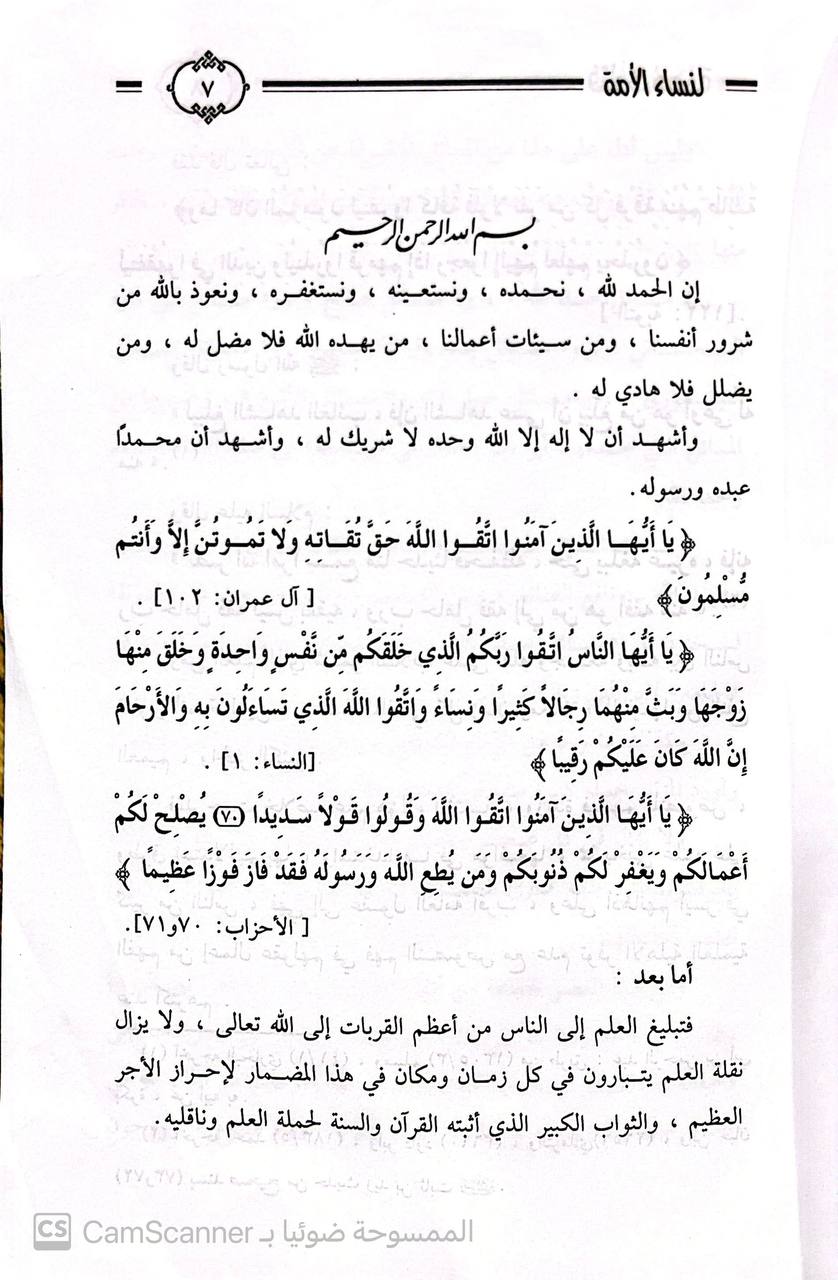 لنساء الأمة
٧
بسم الله الرحمن الرحيم
إن الحمد لله ، نحمده ، ونستعينه ، ونستغفره ، ونعوذ بالله من
شرور أنفسنا ، ومن سيئات أعمالنا ، من يهده الله فلا مضل له ، ومن
يضلل فلا هادي له .
وأشهد أن لا إله إلا الله وحده لا شريك له ، وأشهد أن محمدًا
عبده ورسوله.
﴿ يَا أَيُّهَا الَّذِينَ آمَنُوا اتَّقُوا اللَّهَ حَقَّ تُقَاتِهِ وَلا تَمُوتُنَّ إِلاَّ وَأَنتُم
مُّسْلِمُونَ ﴾ [ آل عمران: ١٠٢] .
﴿ يَا أَيُّهَا النَّاسُ اتَّقُوا رَبَّكُمُ الَّذِي خَلَقَكُم مِّن نَّفْسٍ وَاحِدَةٍ وَخَلَقَ مِنْهَا
زَوْجَهَا وَبَثَّ مِنْهُمَا رِجَالاً كَثِيرًا وَنِسَاءً وَاتَّقُوا اللَّهَ الَّذِي تَسَاءَلُونَ بِهِ وَالأَرْحَامَ
إِنَّ اللَّهَ كَانَ عَلَيْكُمْ رَقِيبًا ﴾ [النساء: ١] .
﴿ يَا أَيُّهَا الَّذِينَ آمَنُوا اتَّقُوا اللَّهَ وَقُولُوا قَوْلاً سَدِيدًا (٧٠) يُصْلِحْ لَكُمْ
أَعْمَالَكُمْ وَيَغْفِرْ لَكُمْ ذُنُوبَكُمْ وَمَن يُطِعِ اللَّهَ وَرَسُولَهُ فَقَدْ فَازَ فَوْزًا عَظِيمًا ﴾
[ الأحزاب: ٧٠و٧١].
أما بعد :
فتبليغ العلم إلى الناس من أعظم القربات إلى الله تعالى ، ولا يزال
نقلة العلم يتبارون في كل زمان ومكان في هذا المضمار لإحراز الأجر
العظيم ، والثواب الكبير الذي أثبته القرآن والسنة لحملة العلم وناقليه.
CS CamScanner الممسوحة ضوئيا بـ